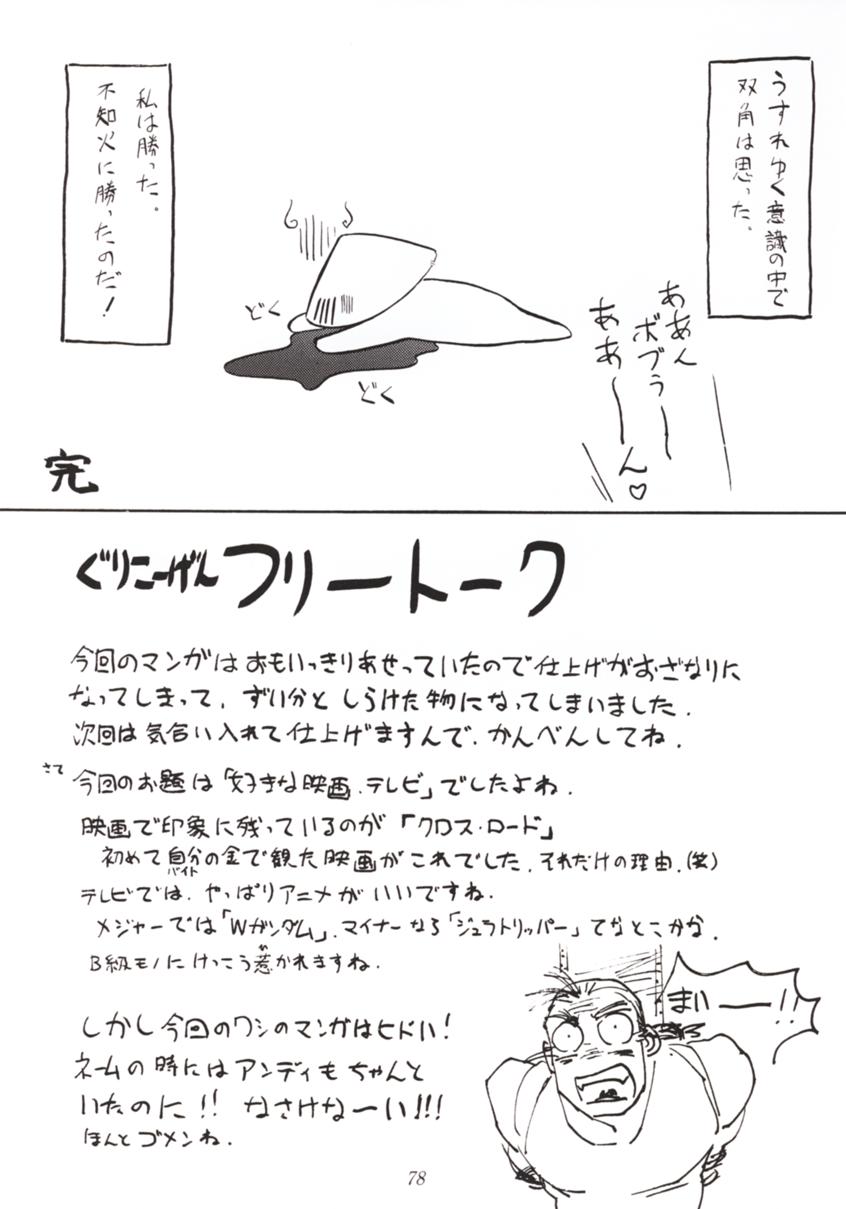 うすれゆく意識の中で
双角は思った。
ああん
ボブぅ〜
ああ〜〜ん♡
どく
どく
私は勝った。
不知火に勝ったのだ!
完
ぐりこーげんフリートーク
今回のマンガはおもいっきりあせっていたので仕上げがおざなりに
なってしまって、ずい分としらけた物になってしまいました.
次回は気合い入れて仕上げますんで、かんべんしてね.
さて
今回のお題は「好きな映画、テレビ」でしたよね.
映画で印象に残っているのが「クロス・ロード」
初めて自分の金で観た映画がこれでした.それだけの理由.(笑)
バイト
テレビでは、やっぱりアニメがいいですね.
メジャーでは「Wガンダム」、マイナーなら「ジュラトリッパー」てなとこかな.
B級モノにけっこう惹かれますね.
ひ
しかし今回のワシのマンガはヒドい!
ネームの時にはアンディもちゃんと
いたのに!!なさけな〜い!!!
ほんとゴメンね.
まいー!!
78